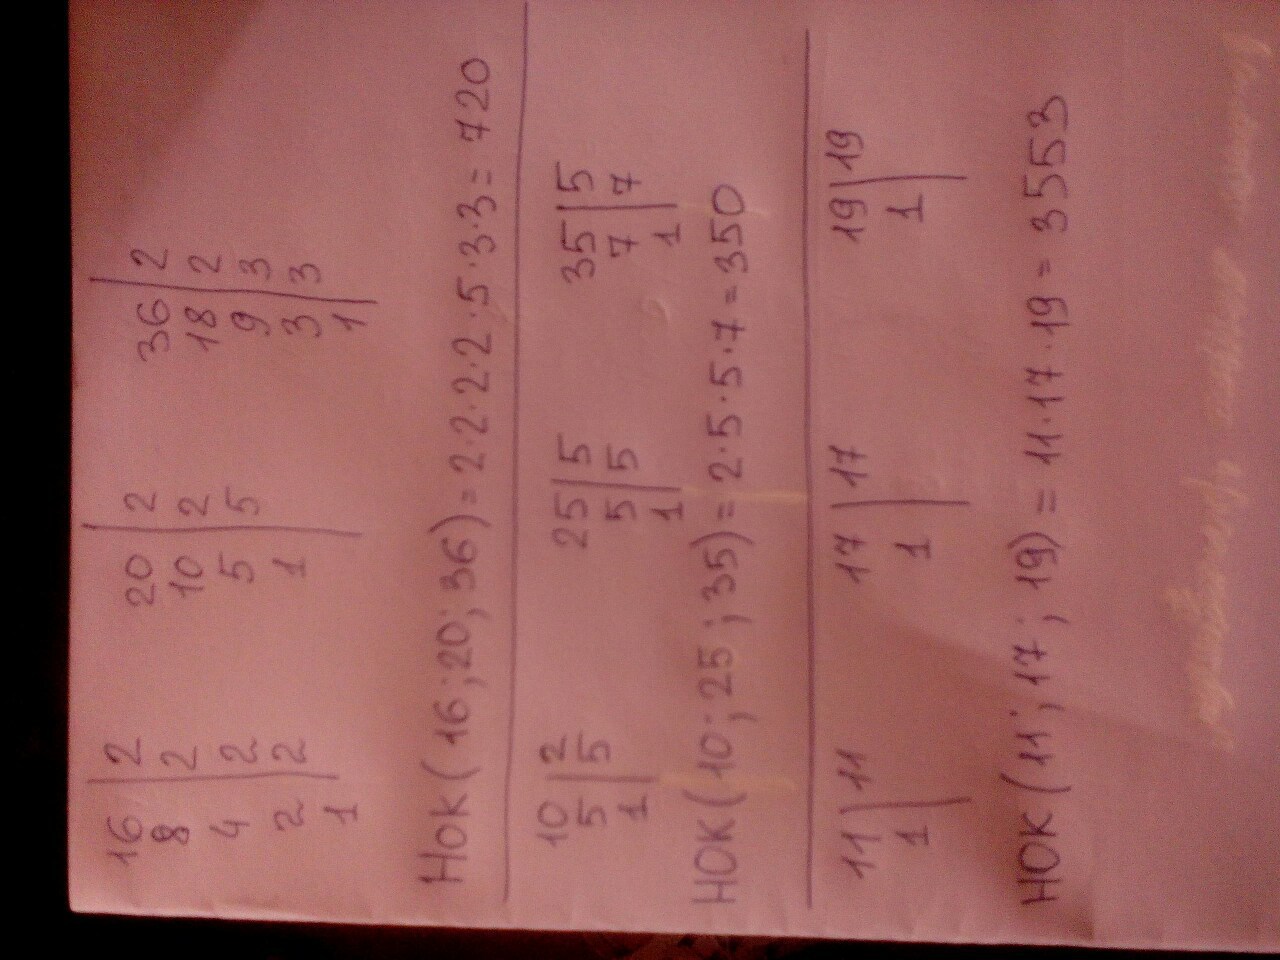 16 | 2 20 | 2 36 | 2
8 | 2 10 | 2 18 | 2
4 | 2 5 | 5 9 | 3
2 | 2 1 | 3 | 3
1 | 1 |
НОК (16; 20; 36) = 2·2·2·2·5·3·3 = 720
10 | 2 25 | 5 35 | 5
5 | 5 5 | 5 7 | 7
1 | 1 | 1 |
НОК (10; 25; 35) = 2·5·5·7 = 350
11 | 11 17 | 17 19 | 19
1 | 1 | 1 |
НОК (11; 17; 19) = 11·17·19 = 3553